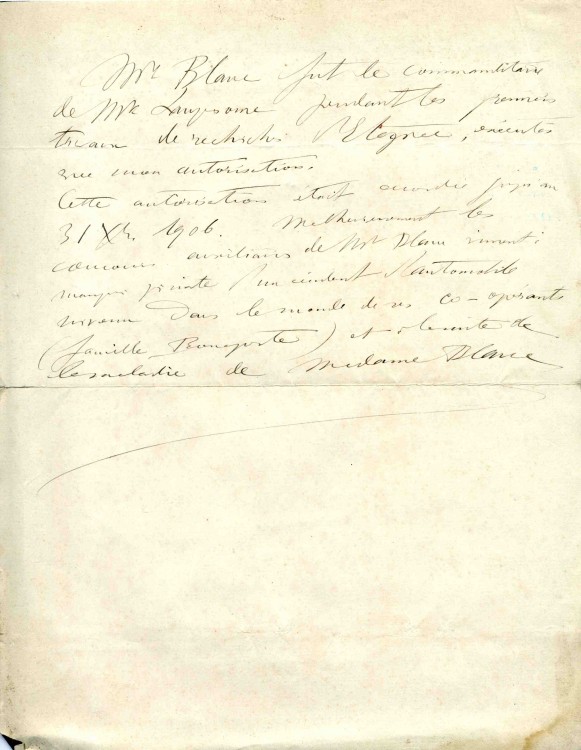 Mr Blanc fut le commanditaire
de Mr pendant les premiers
travaux de recherches d'Etagnac, exécutés
avec mon autorisation.
Cette autorisation était accordée jusqu'au
31 Xbre 1906. Malheureusement les
concours auxiliaires de Mr Blanc vinrent à
manquer par suite d'un accident d'automobile
survenu dans le monde de ses co-opérants
(famille Bonaparte) et à la suite de
la maladie de Madame Blanc